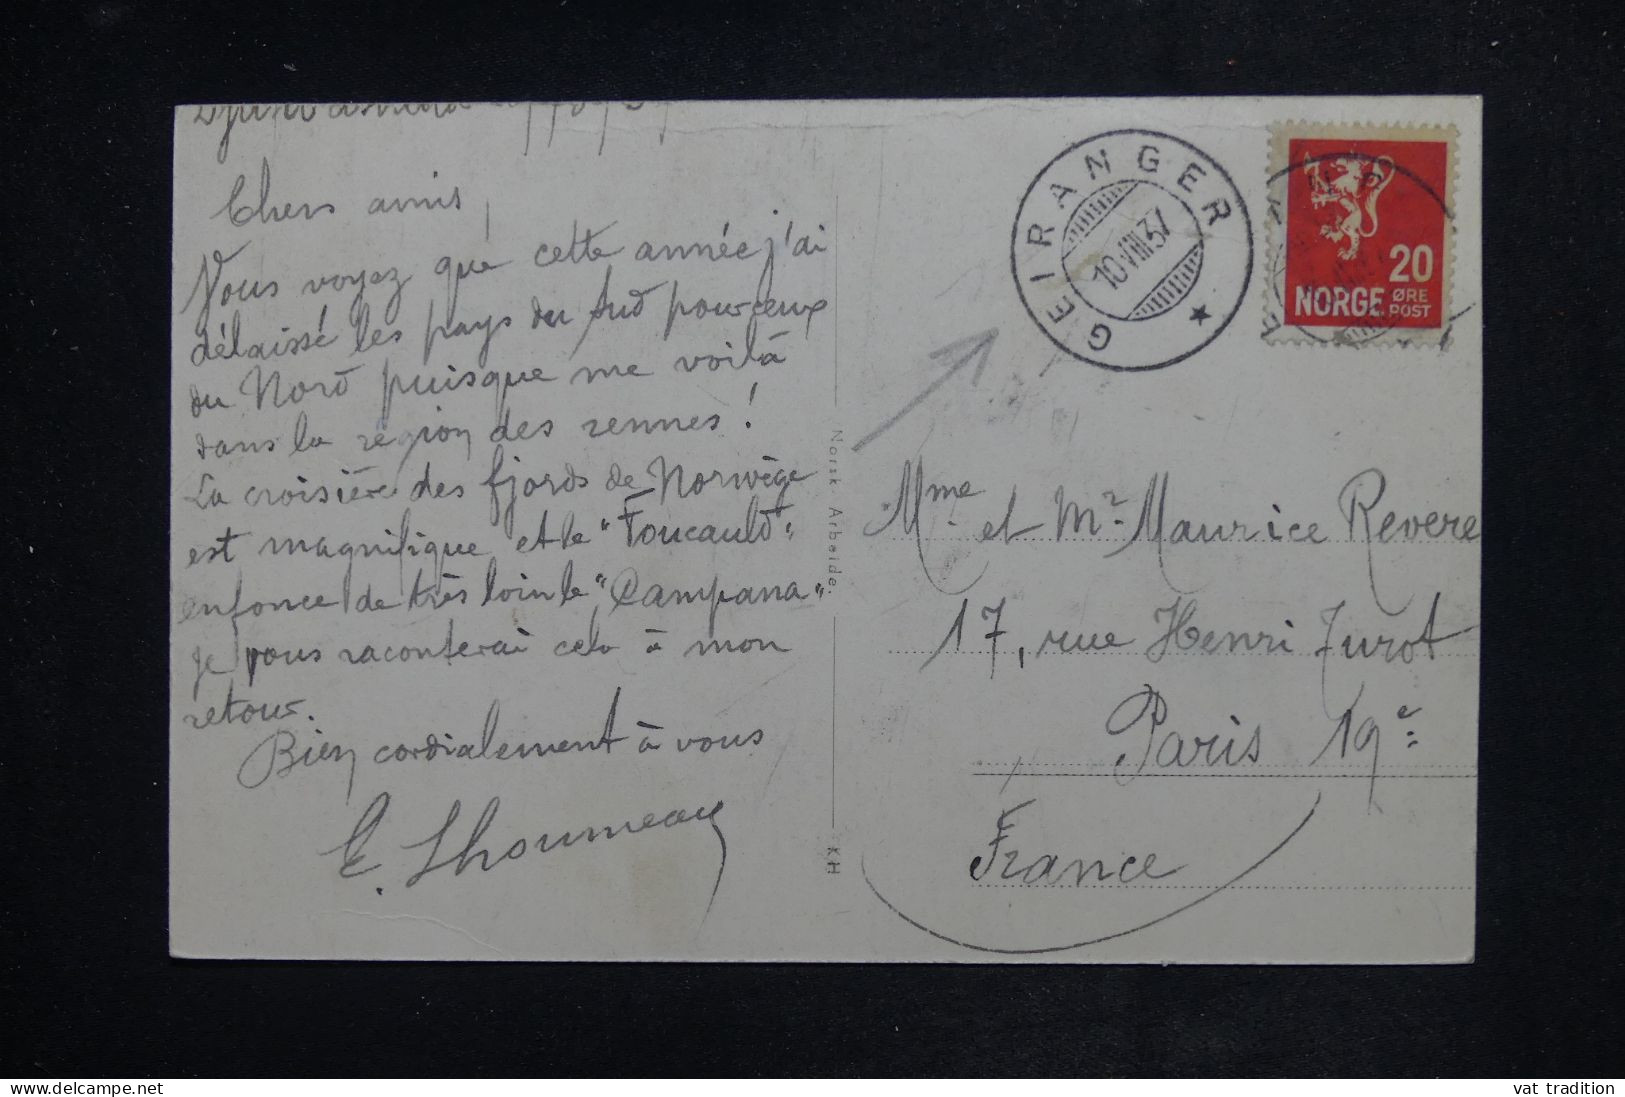 Chers amis,
Vous voyez que cette année j'ai
délaissé les pays du Sud pour ceux
du Nord puisque me voilà
dans la région des rennes !
La croisière des fjords de Norwège
est magnifique et le "Foucauld"
enfonce de très loin le "Campana"
je vous raconterai cela à mon
retour.
Bien cordialement à vous
E. Lhoumeau
Norsk Arbeide.
KH
GEIRANGER
10 VIII 37
20
NORGE ØRE
POST
Mme et Mr. Maurice Revere
17, rue Henri Turot
Paris 19e
France
delcampe.net
vat_tradition